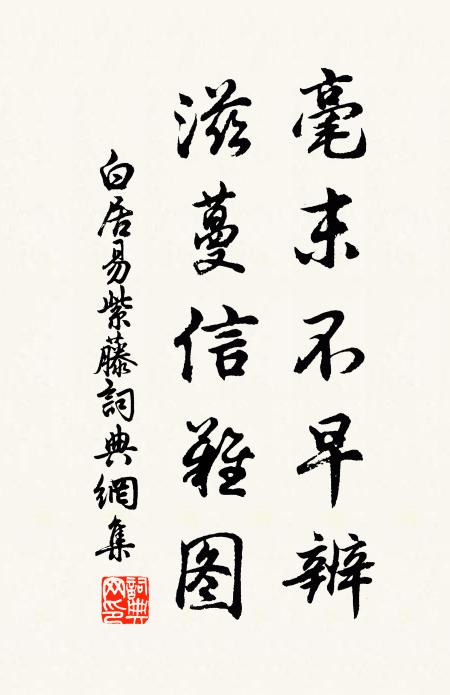 毫末不早辨
滋蔓信難图
白居易紫藤詞典網集
詞典网印